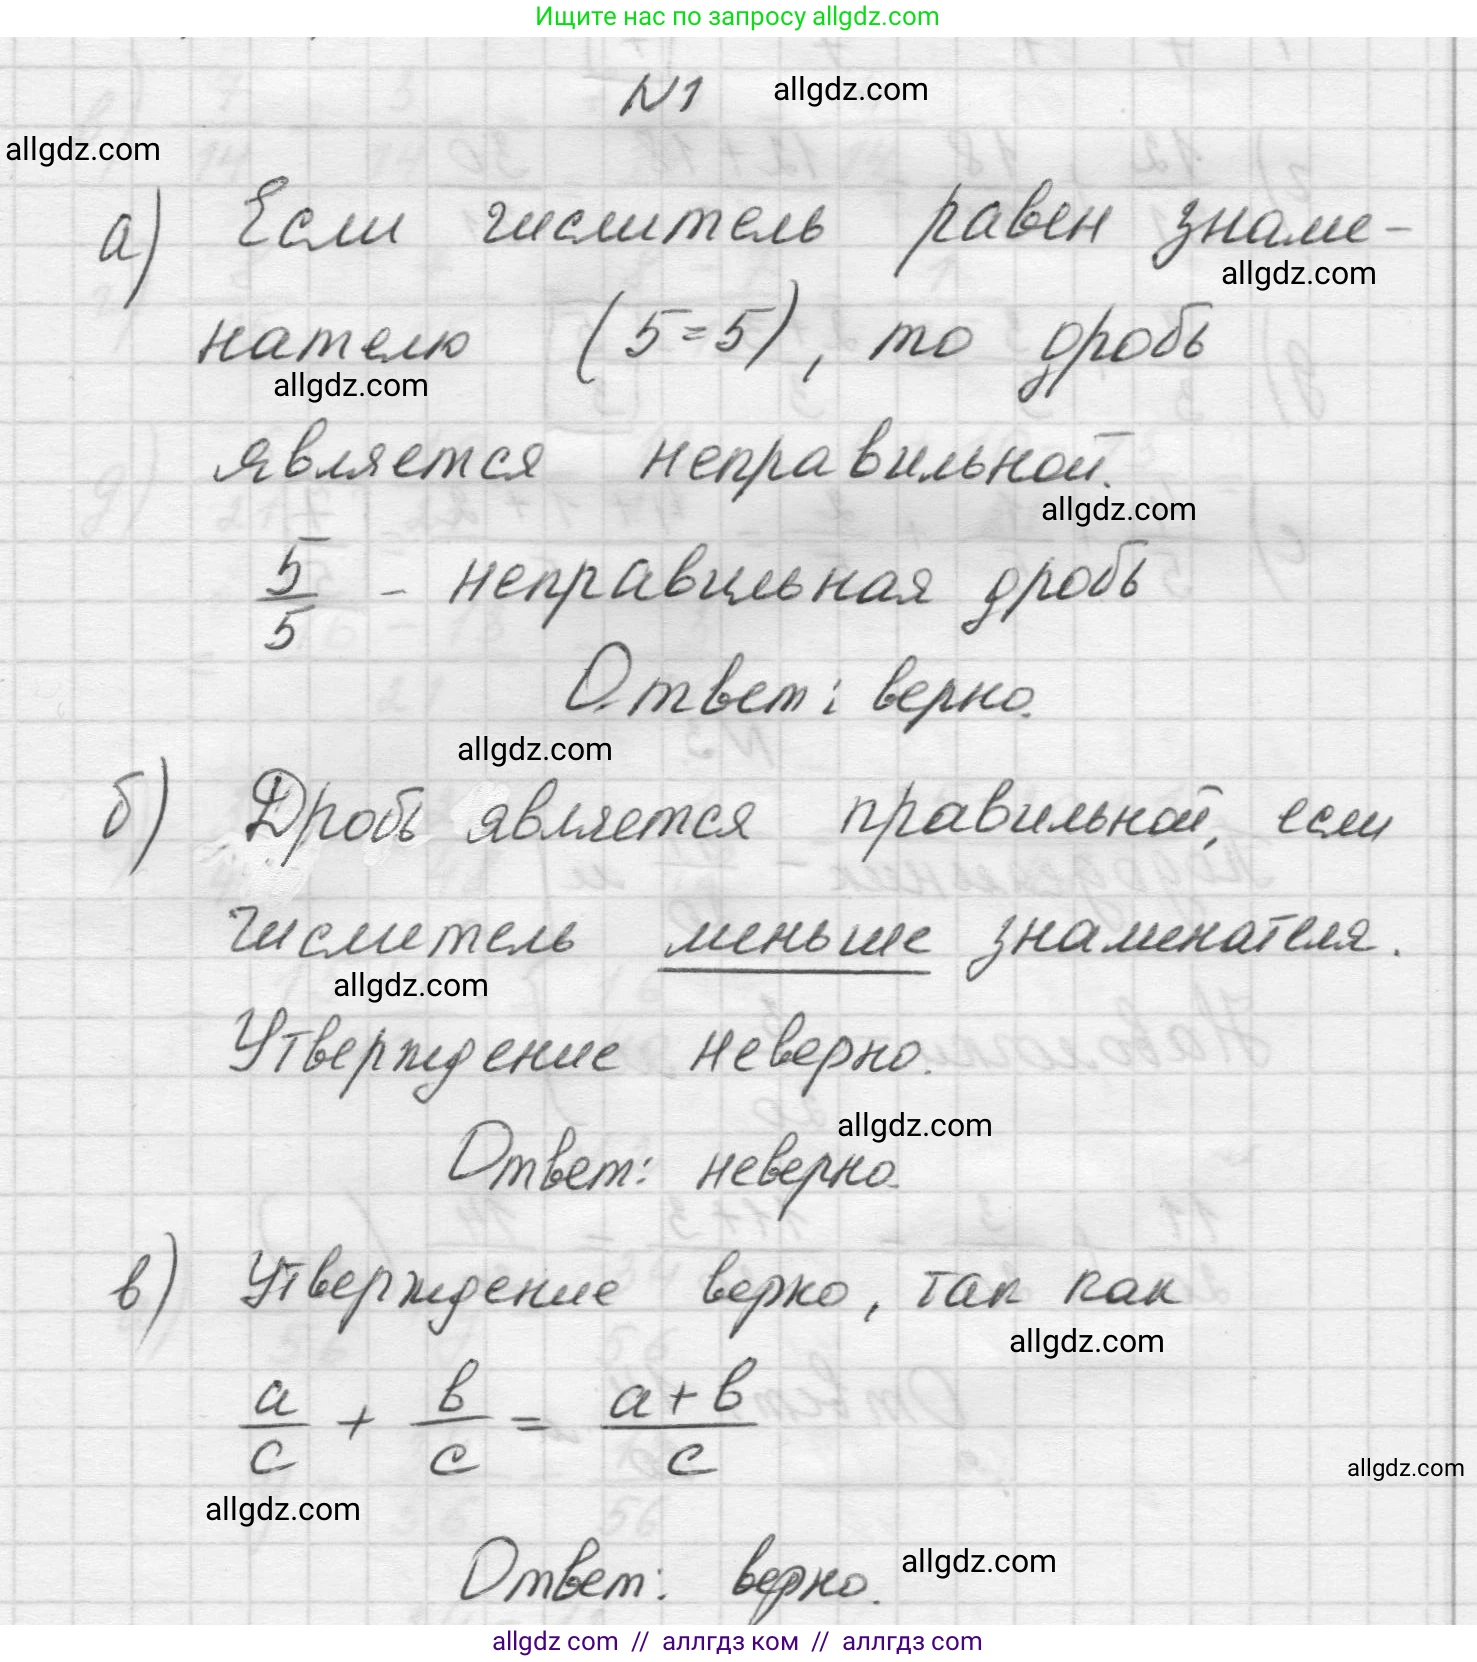 Ищите нас по запросу allgdz.com
N1 allgdz.com
allgdz.com
а) Если числитель равен знаме-
allgdz.com
нателю (5=5), то дробь
allgdz.com
является неправильной.
allgdz.com
5/5 - неправильная дробь
Ответ: верно.
allgdz.com
б) Дробь является правильной, если
числитель меньше знаменателя.
allgdz.com
Утверждение неверно.
allgdz.com
Ответ: неверно.
в) Утверждение верно, так как
allgdz.com
a/c + b/c = a+b/c
allgdz.com
allgdz.com
Ответ: верно. allgdz.com
allgdz com // аллгдз ком // аллгдз com